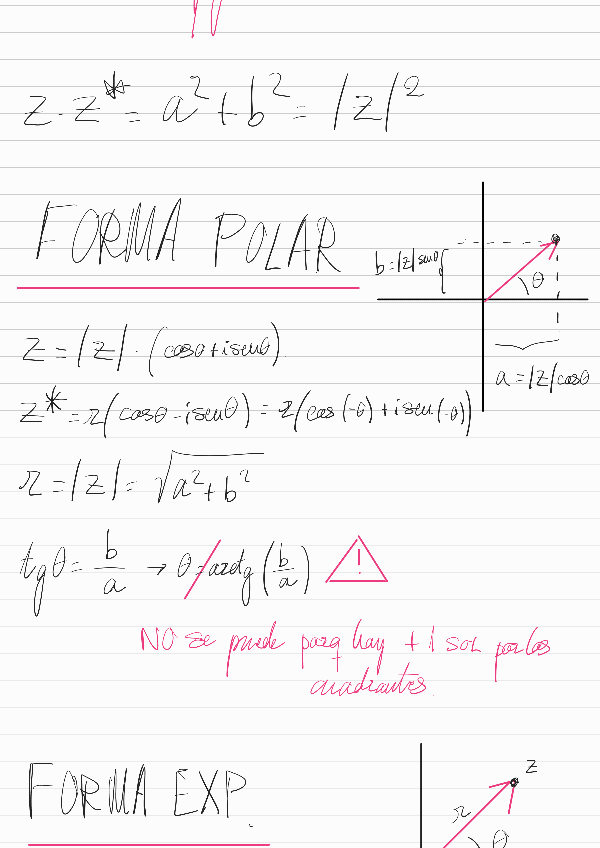 z · z* = a² + b² = |z|²
FORMA POLAR
b = |z| senθ
θ
z = |z| · (cosθ + i senθ).
a = |z| cosθ
z* = r(cosθ - i senθ) = r(cos(-θ) + i sen(-θ))
r = |z| = √(a² + b²)
tgθ = b/a → θ = arctg(b/a) !
NO se puede porq hay + 1 sol por los
cuadrantes.
FORMA EXP.
z
r
θ